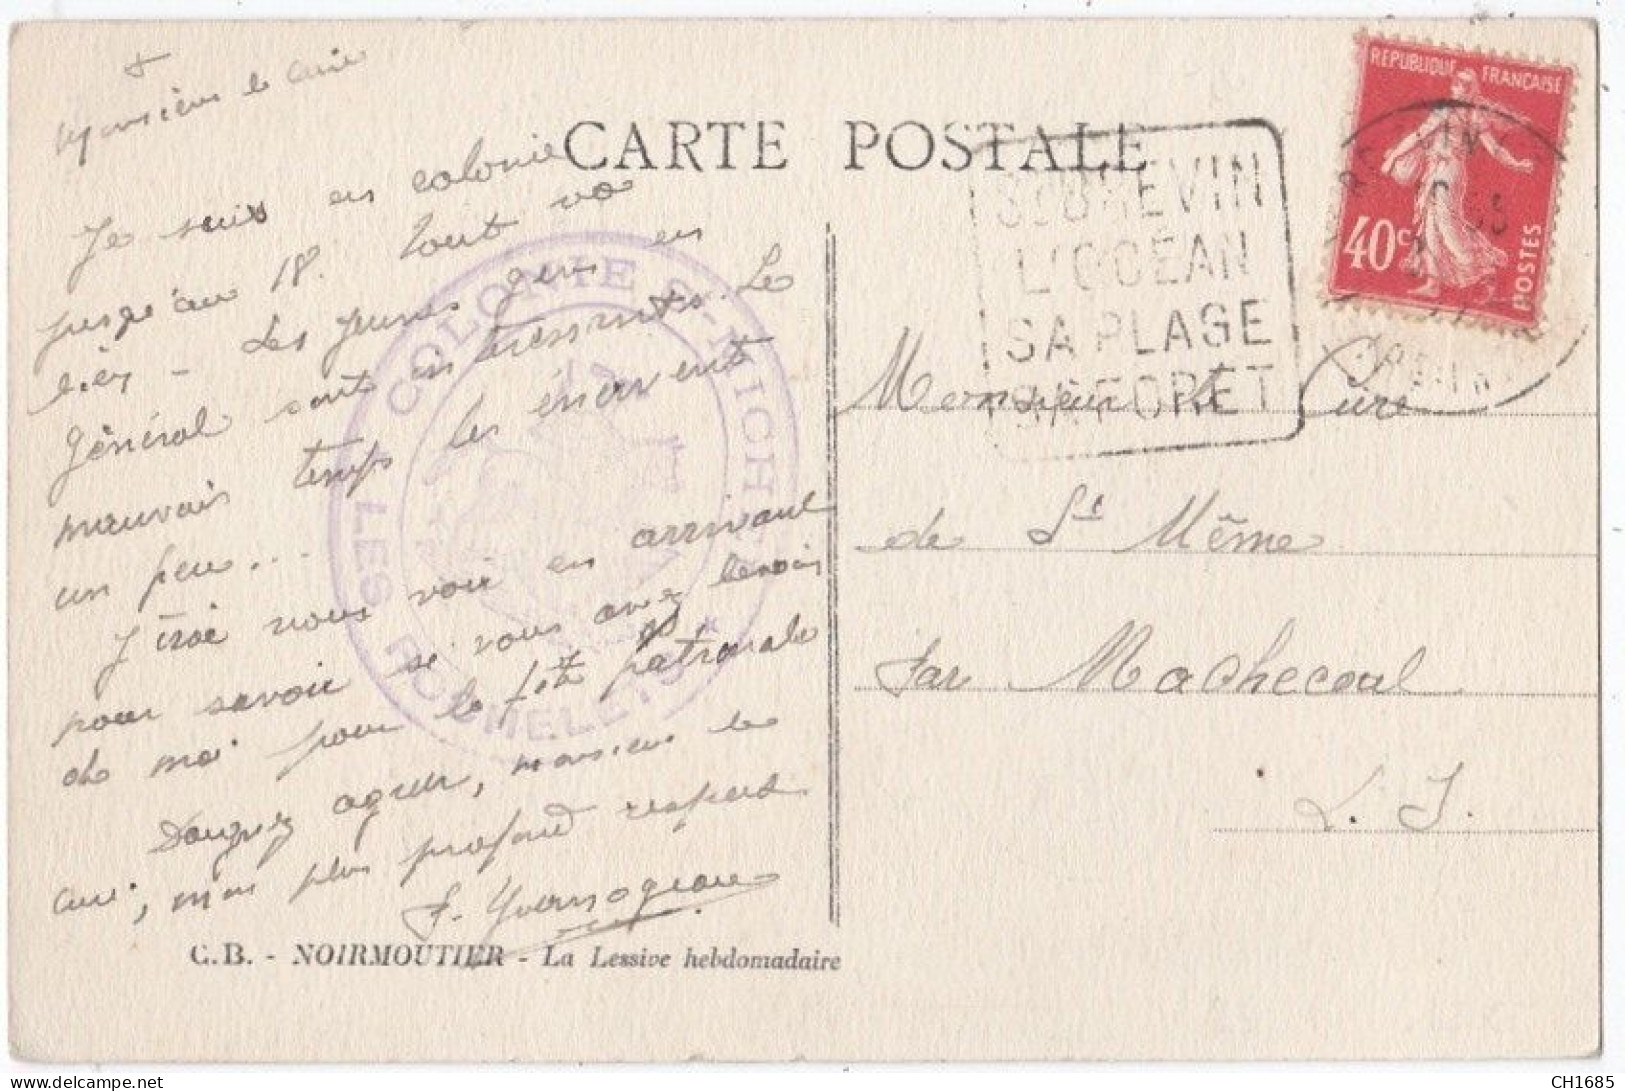 Monsieur le curé
CARTE POSTALE
Je suis en colonie
jusqu'au 18. Tout va
bien - Les jeunes gens en
général sont intéressants. Le
mauvais temps les énervent
un peu...
J'irai vous voir en arrivant
pour savoir si vous avez besoin
de moi pour la fête patronale
agréer, monsieur le
curé, mon plus profond respect
C.B. - NOIRMOUTIER - La Lessive hebdomadaire
COLONIE LES
REPUBLIQUE FRANÇAISE
40c POSTES
L'OCÉAN
SA PLAGE
SA FORET
Monsieur le Curé
de St Même
Par Machecoul
L. I.
delcampe.net
CH1685